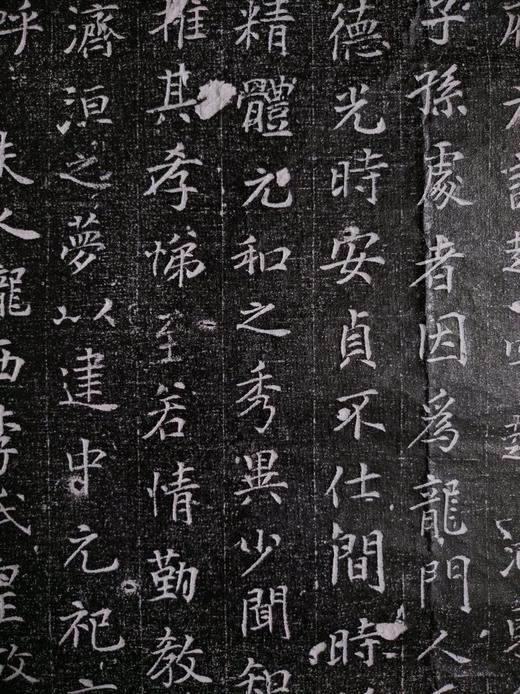 子孫處者因爲龍門人
德光時安貞不仕間時
精體元和之秀異少聞知
推其孝悌至若情勤教
濟洹之夢以建中元祀
呼 夫人隴西李氏皇